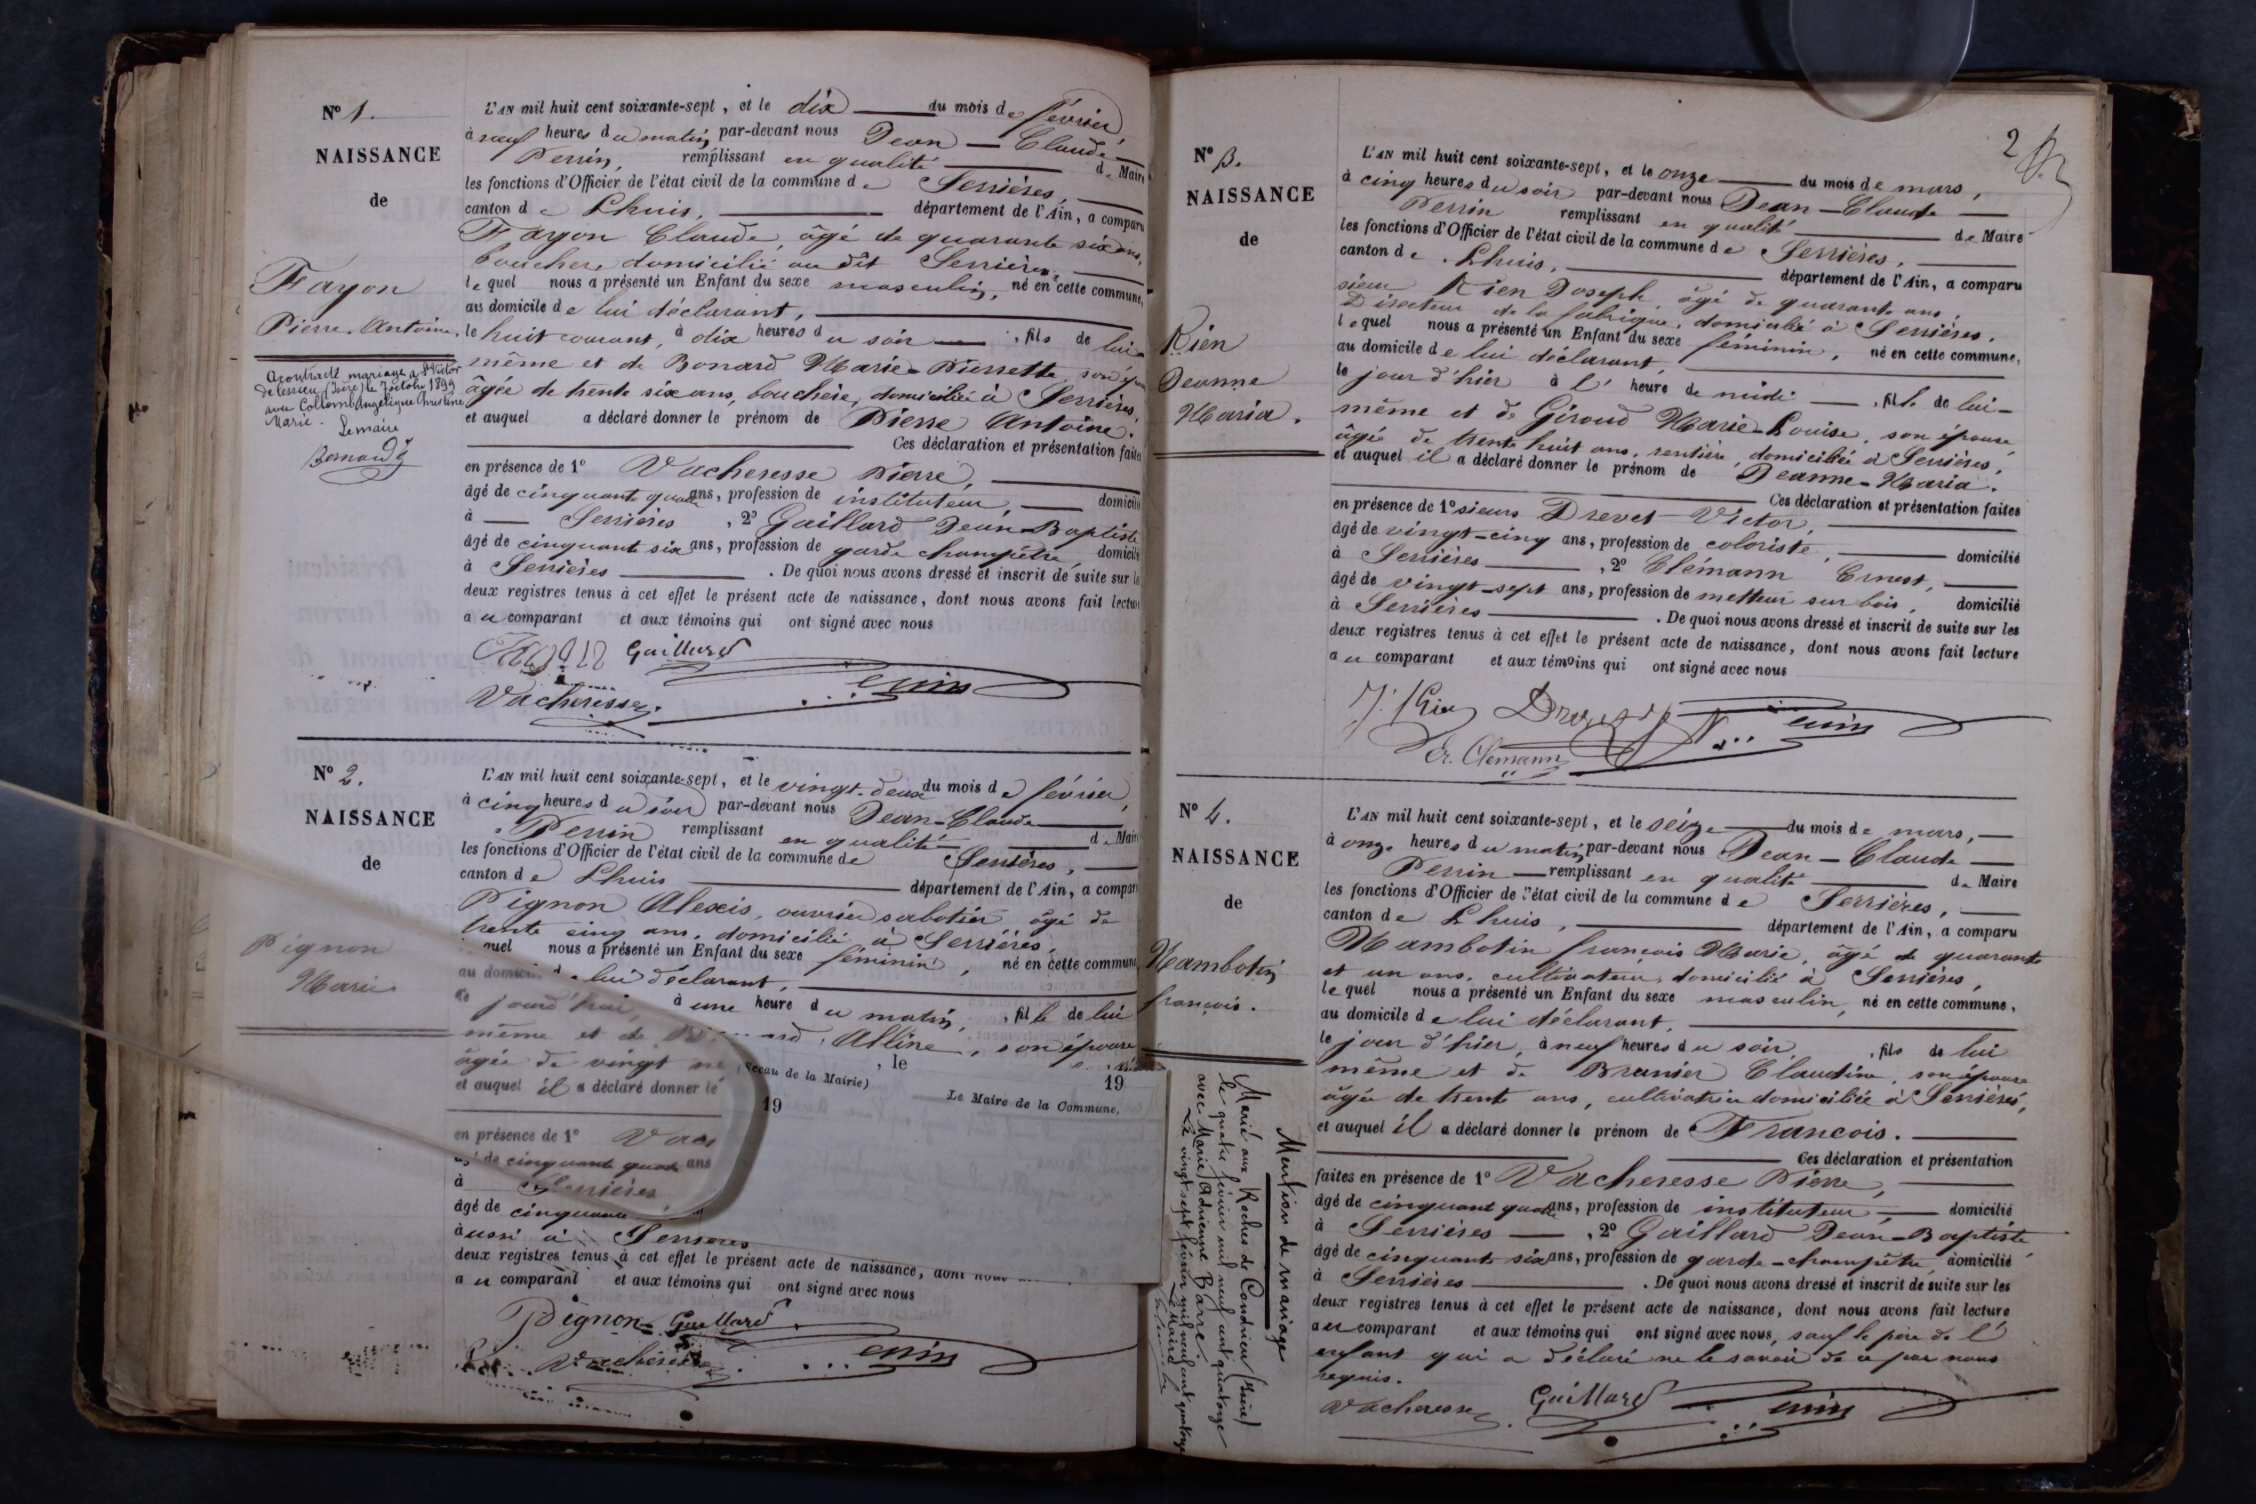 N° 1.
NAISSANCE
de
Fayon
Pierre-Antoine.
a contracté mariage à St Victor
de Cessieu (Isère) le 7 octobre 1899
avec Collomb Angélique Christine
Marie.
Le maire
L'AN mil huit cent soixante-sept, et le dix du mois de février,
à neuf heures du matin par-devant nous Jean-Claude
Perrin, remplissant en qualité de Maire
les fonctions d'Officier de l'état civil de la commune de Serrières,
canton de Lhuis, département de l'Ain, a comparu
Fayon Claude, âgé de quarante six ans,
boucher, domicilié au dit Serrières,
lequel nous a présenté un Enfant du sexe masculin, né en cette commune,
au domicile de lui déclarant,
le huit courant, à dix heures du soir, fils de lui-
même et de Bonard Marie-Pierrette son épouse
âgée de trente six ans, bouchère, domiciliée à Serrières,
et auquel a déclaré donner le prénom de Pierre Antoine.
Ces déclaration et présentation faites
en présence de 1° Vacheresse Pierre,
âgé de cinquante quatre ans, profession de instituteur, domicilié
à Serrières, 2° Gaillard Jean-Baptiste
âgé de cinquante six ans, profession de garde champêtre, domicilié
à Serrières. De quoi nous avons dressé et inscrit de suite sur les
deux registres tenus à cet effet le présent acte de naissance, dont nous avons fait lecture
au comparant et aux témoins qui ont signé avec nous
Fayon Gaillard
Vacheresse. Perrin
N° 2.
NAISSANCE
de
Pignon
Marie
L'AN mil huit cent soixante-sept, et le vingt-deux du mois de février,
à cinq heures du soir par-devant nous Jean-Claude
Perrin remplissant en qualité de Maire
les fonctions d'Officier de l'état civil de la commune de Serrières,
canton de Lhuis département de l'Ain, a comparu
Pignon Alexis, ouvrier sabotier âgé de
trente cinq ans, domicilié à Serrières,
quel nous a présenté un Enfant du sexe féminin, né en cette commune
au domicile de lui déclarant,
ce jourd'hui, à une heure du matin, fille de lui
même et de Alline, son épouse
âgée de vingt
et auquel il a déclaré donner le
, le
(Sceau de la Mairie)
19
19
Le Maire de la Commune,
en présence de 1° Vac
âgé de cinquante quatre ans
à Serrières
âgé de cinquante
aussi à Serrières
deux registres tenus à cet effet le présent acte de naissance, dont nous
au comparant et aux témoins qui ont signé avec nous
Pignon Gaillard
Vacheresse Perrin
2
N° 3.
NAISSANCE
de
Rien
Jeanne
Maria.
L'AN mil huit cent soixante-sept, et le onze du mois de mars,
à cinq heures du soir par-devant nous Jean-Claude
Perrin remplissant en qualité de Maire
les fonctions d'Officier de l'état civil de la commune de Serrières,
canton de Lhuis, département de l'Ain, a comparu
sieur Rien Joseph, âgé de quarante ans,
Directeur de la fabrique, domicilié à Serrières,
lequel nous a présenté un Enfant du sexe féminin, né en cette commune,
au domicile de lui déclarant,
le jour d'hier à l'heure de midi, fille de lui-
même et de Giroud Marie-Louise, son épouse
âgée de trente huit ans, rentière, domiciliée à Serrières,
et auquel il a déclaré donner le prénom de Jeanne-Maria.
Ces déclaration et présentation faites
en présence de 1° sieurs Drevet Victor,
âgé de vingt-cinq ans, profession de coloriste, domicilié
à Serrières, 2° Clémann Ernest,
âgé de vingt-sept ans, profession de metteur sur bois, domicilié
à Serrières. De quoi nous avons dressé et inscrit de suite sur les
deux registres tenus à cet effet le présent acte de naissance, dont nous avons fait lecture
au comparant et aux témoins qui ont signé avec nous
J. Rien Drevet Perrin
Er. Clemann
N° 4.
NAISSANCE
de
Mambotin
françois.
Mention de mariage
Marié aux Roches de Condrieu (Isère)
le quatre février mil neuf cent quatorze
avec Marie Adrienne Parre.
Le vingt sept février mil neuf cent quatorze
Le Maire
L'AN mil huit cent soixante-sept, et le seize du mois de mars,
à onze heures du matin par-devant nous Jean-Claude
Perrin remplissant en qualité de Maire
les fonctions d'Officier de l'état civil de la commune de Serrières,
canton de Lhuis, département de l'Ain, a comparu
Mambotin françois Marie, âgé de quarante
et un ans, cultivateur domicilié à Serrières,
lequel nous a présenté un Enfant du sexe masculin, né en cette commune,
au domicile de lui déclarant,
le jour d'hier, à neuf heures du soir, fils de lui
même et de Branier Claudine, son épouse
âgée de trente ans, cultivatrice domiciliée à Serrières,
et auquel il a déclaré donner le prénom de François.
Ces déclaration et présentation
faites en présence de 1° Vacheresse Pierre,
âgé de cinquante quatre ans, profession de instituteur, domicilié
à Serrières, 2° Gaillard Jean-Baptiste
âgé de cinquante six ans, profession de garde-champêtre, domicilié
à Serrières. De quoi nous avons dressé et inscrit de suite sur les
deux registres tenus à cet effet le présent acte de naissance, dont nous avons fait lecture
au comparant et aux témoins qui ont signé avec nous, sauf le père de l'
enfant qui a déclaré ne le savoir de ce par nous
requis.
Vacheresse Gaillard Perrin